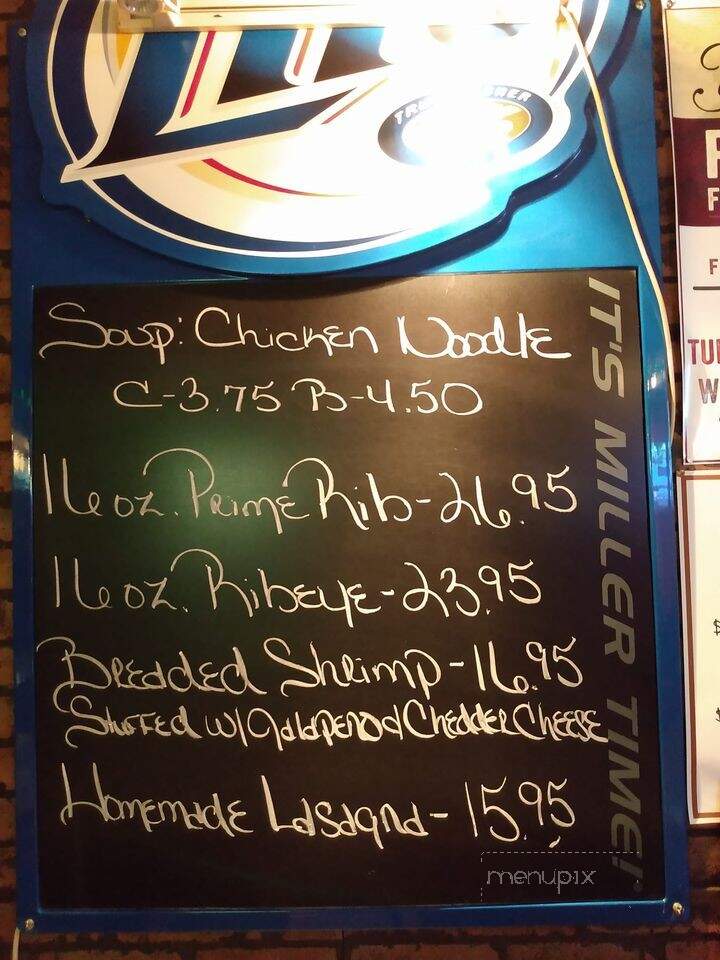 Soup: Chicken Noodle
C-3.75 B-4.50
16oz. Prime Rib-26.95
16oz. Ribeye-23.95
Bredded Shrimp-16.95
Stuffed w/Jalapeno & Chedder Cheese
Homemade Lasagna-15.95
IT'S MILLER TIME!
menupix